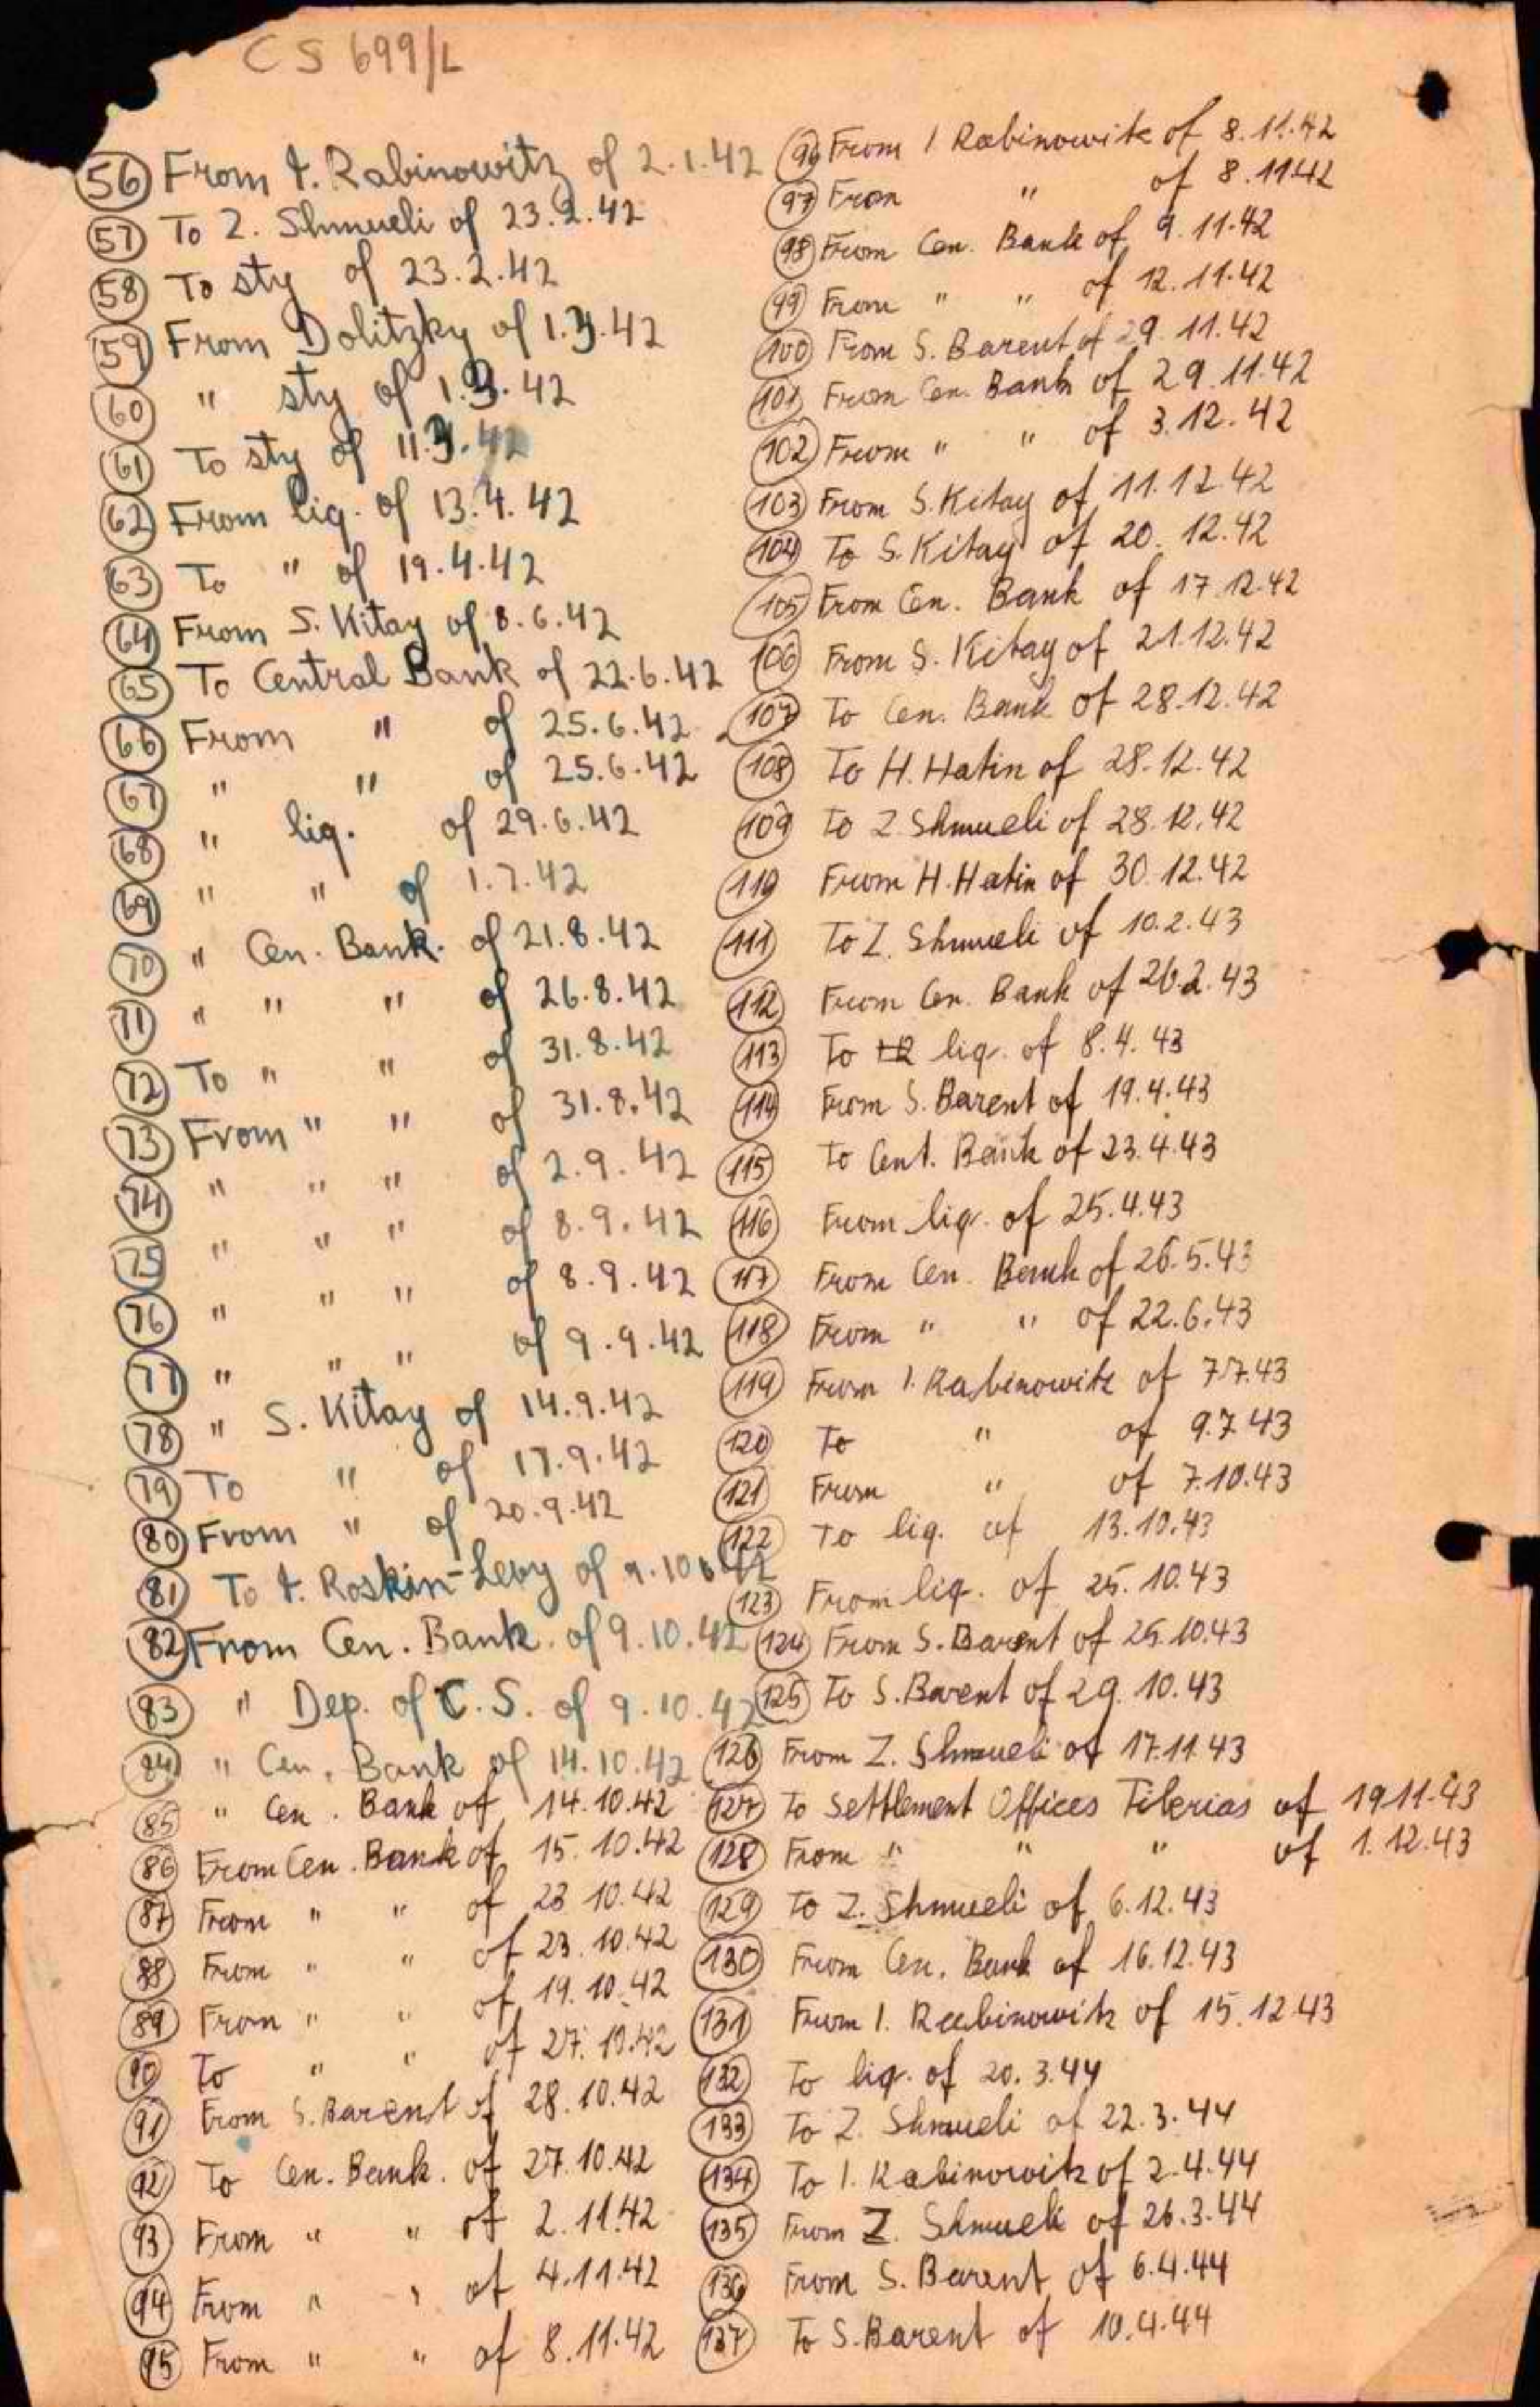 CS 699/L
(56) From I. Rabinowitz of 2.1.42
(57) To Z. Shmueli of 23.2.42
(58) To sty of 23.2.42
(59) From Dolitzky of 1.3.42
(60) " sty of 1.3.42
(61) To sty of 11.3.42
(62) From liq. of 13.4.42
(63) To " of 19.4.42
(64) From S. Kitay of 8.6.42
(65) To Central Bank of 22.6.42
(66) From " of 25.6.42
(67) " " of 25.6.42
(68) " liq. of 29.6.42
(69) " " of 1.7.42
(70) " Cen. Bank. of 21.8.42
(71) " " " of 26.8.42
(72) To " " of 31.8.42
(73) From " " of 31.8.42
(74) " " " of 2.9.42
(75) " " " of 8.9.42
(76) " " " of 8.9.42
(77) " " " of 9.9.42
(78) " S. Kitay of 14.9.42
(79) To " of 17.9.42
(80) From " of 20.9.42
(81) To I. Roskin-Levy of 9.10.42
(82) From Cen. Bank. of 9.10.42
(83) " Dep. of C.S. of 9.10.42
(84) " Cen. Bank of 14.10.42
(85) " Cen. Bank of 14.10.42
(86) From Cen. Bank of 15.10.42
(87) From " " of 23 10.42
(88) From " " of 23.10.42
(89) From " " of 19.10.42
(90) To " " of 27.10.42
(91) From S. Barent of 28.10.42
(92) To Cen. Bank. of 27.10.42
(93) From " " of 2.11.42
(94) From " " of 4.11.42
(95) From " " of 8.11.42
(96) From I Rabinowitz of 8.11.42
(97) From " of 8.11.42
(98) From Cen. Bank of 9.11.42
(99) From " " of 12.11.42
(100) From S. Barent of 29.11.42
(101) From Cen. Bank of 29.11.42
(102) From " " of 3.12.42
(103) From S. Kitay of 11.12.42
(104) To S. Kitay of 20.12.42
(105) From Cen. Bank of 17.12.42
(106) From S. Kitay of 21.12.42
(107) To Cen. Bank of 28.12.42
(108) To H. Hatin of 28.12.42
(109) To Z. Shmueli of 28.12.42
(110) From H. Hatin of 30.12.42
(111) To Z. Shmueli of 10.2.43
(112) From Cen. Bank of 26.2.43
(113) To liq. of 8.4.43
(114) From S. Barent of 19.4.43
(115) To Cent. Bank of 23.4.43
(116) From liq. of 25.4.43
(117) From Cen. Bank of 26.5.43
(118) From " " of 22.6.43
(119) From I. Rabinowitz of 7.7.43
(120) To " of 9.7.43
(121) From " of 7.10.43
(122) To liq. of 13.10.43
(123) From liq. of 25.10.43
(124) From S. Barent of 25.10.43
(125) To S. Barent of 29.10.43
(126) From Z. Shmueli of 17.11.43
(127) To Settlement Offices Tiberias of 19.11.43
(128) From " " " of 1.12.43
(129) To Z. Shmueli of 6.12.43
(130) From Cen. Bank of 16.12.43
(131) From I. Rabinowitz of 15.12.43
(132) To liq. of 20.3.44
(133) To Z. Shmueli of 22.3.44
(134) To I. Rabinowitz of 2.4.44
(135) From Z. Shmueli of 26.3.44
(136) From S. Barent of 6.4.44
(137) To S. Barent of 10.4.44